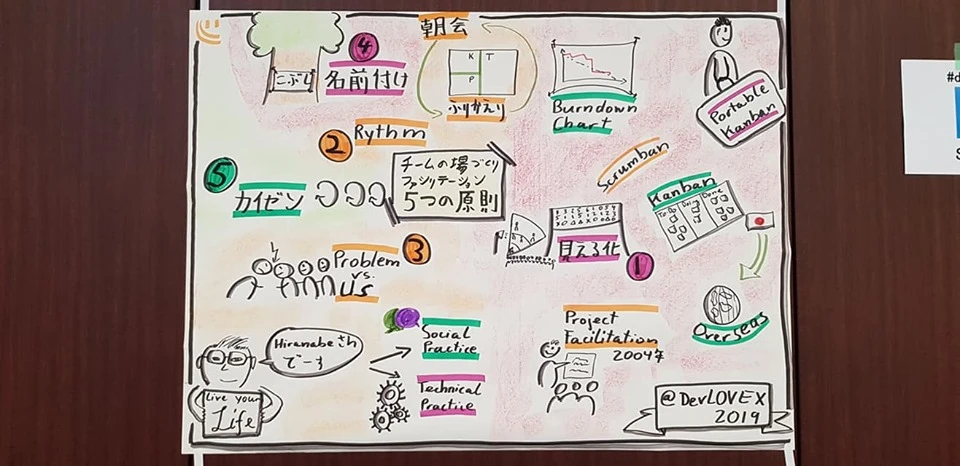 朝会
K T
P
ふりかえり
Burndown
Chart
Portable
Kanban
こぶし
4
名前付け
2
Rythm
Scrumban
5
カイゼン
チームの場づくり
ファシリテーション
5つの原則
Kanban
To Do
Doing
Done
見える化
1
3
Problem
vs.
us
Overseas
Hiranabeさん
でーす
Social
Practice
Technical
Practice
Project
Facilitation
2004年
Live your
Life
@DevLOVEX
2019
#d
S